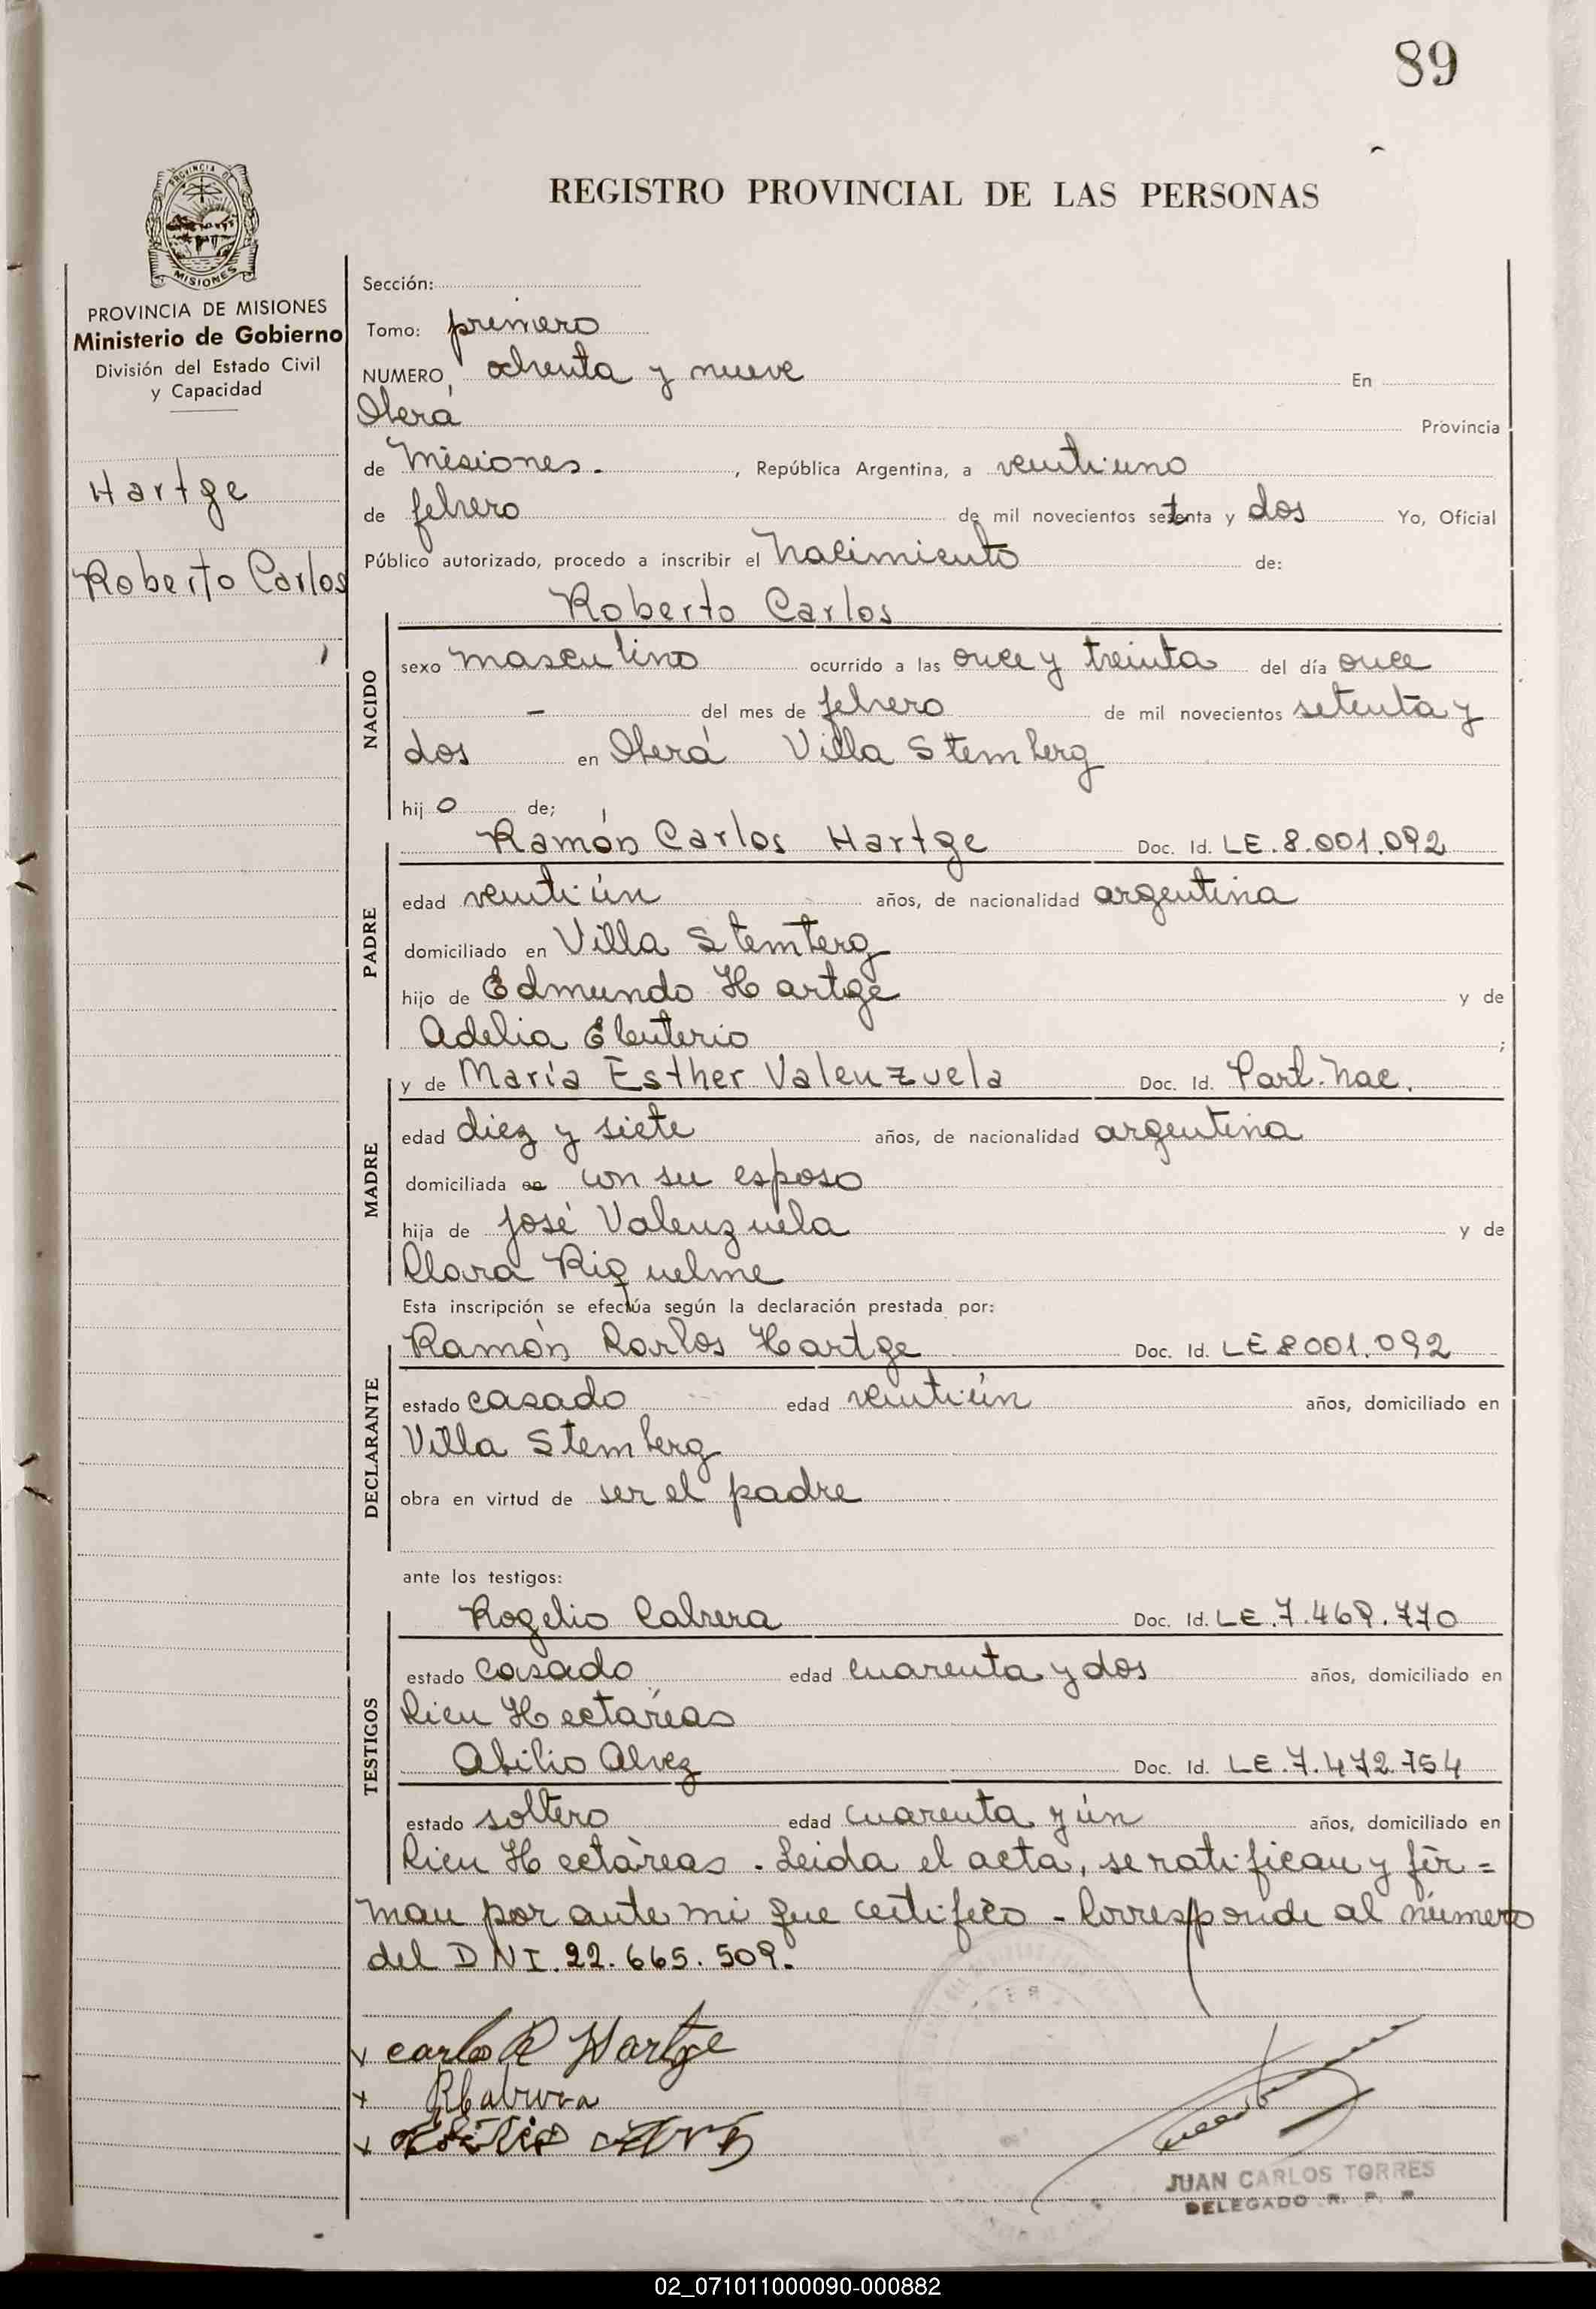 89
REGISTRO PROVINCIAL DE LAS PERSONAS
PROVINCIA DE
MISIONES
PROVINCIA DE MISIONES
Ministerio de Gobierno
División del Estado Civil
y Capacidad
Hartge
Roberto Carlos
Sección:
Tomo: primero
NUMERO, ochenta y nueve En
Oberá Provincia
de Misiones. , República Argentina, a veintiuno
de febrero de mil novecientos setenta y dos Yo, Oficial
Público autorizado, procedo a inscribir el Nacimiento de:
Roberto Carlos
NACIDO
sexo masculino ocurrido a las once y treinta del día once
- del mes de febrero de mil novecientos setenta y
dos en Oberá Villa Stemberg
hijo de;
PADRE
Ramón Carlos Hartge Doc. Id. LE.8.001.092
edad veintiún años, de nacionalidad argentina
domiciliado en Villa Stemberg
hijo de Edmundo Hartge y de
Adelia Eleuterio ;
MADRE
y de María Esther Valenzuela Doc. Id. Part. Nac.
edad diez y siete años, de nacionalidad argentina
domiciliada en con su esposo
hija de José Valenzuela y de
Clara Riquelme
Esta inscripción se efectúa según la declaración prestada por:
DECLARANTE
Ramón Carlos Hartge Doc. Id. LE 8001.092
estado casado edad veintiún años, domiciliado en
Villa Stemberg
obra en virtud de ser el padre
ante los testigos:
TESTIGOS
Rogelio Cabrera Doc. Id. LE.7.469.770
estado casado edad cuarenta y dos años, domiciliado en
Cien Hectáreas
Abilio Alvez Doc. Id. LE.7.472.754
estado soltero edad cuarenta y ún años, domiciliado en
Cien Hectàreas. Leida el acta, se ratifican y fir=
man por ante mi que certifico - Corresponde al número
del DNI. 22.665.509.
x carlo R Hartge
x RCabrera
x Abilio Alvez
JUAN CARLOS TORRES
DELEGADO R. P. P.
02_071011000090-000882